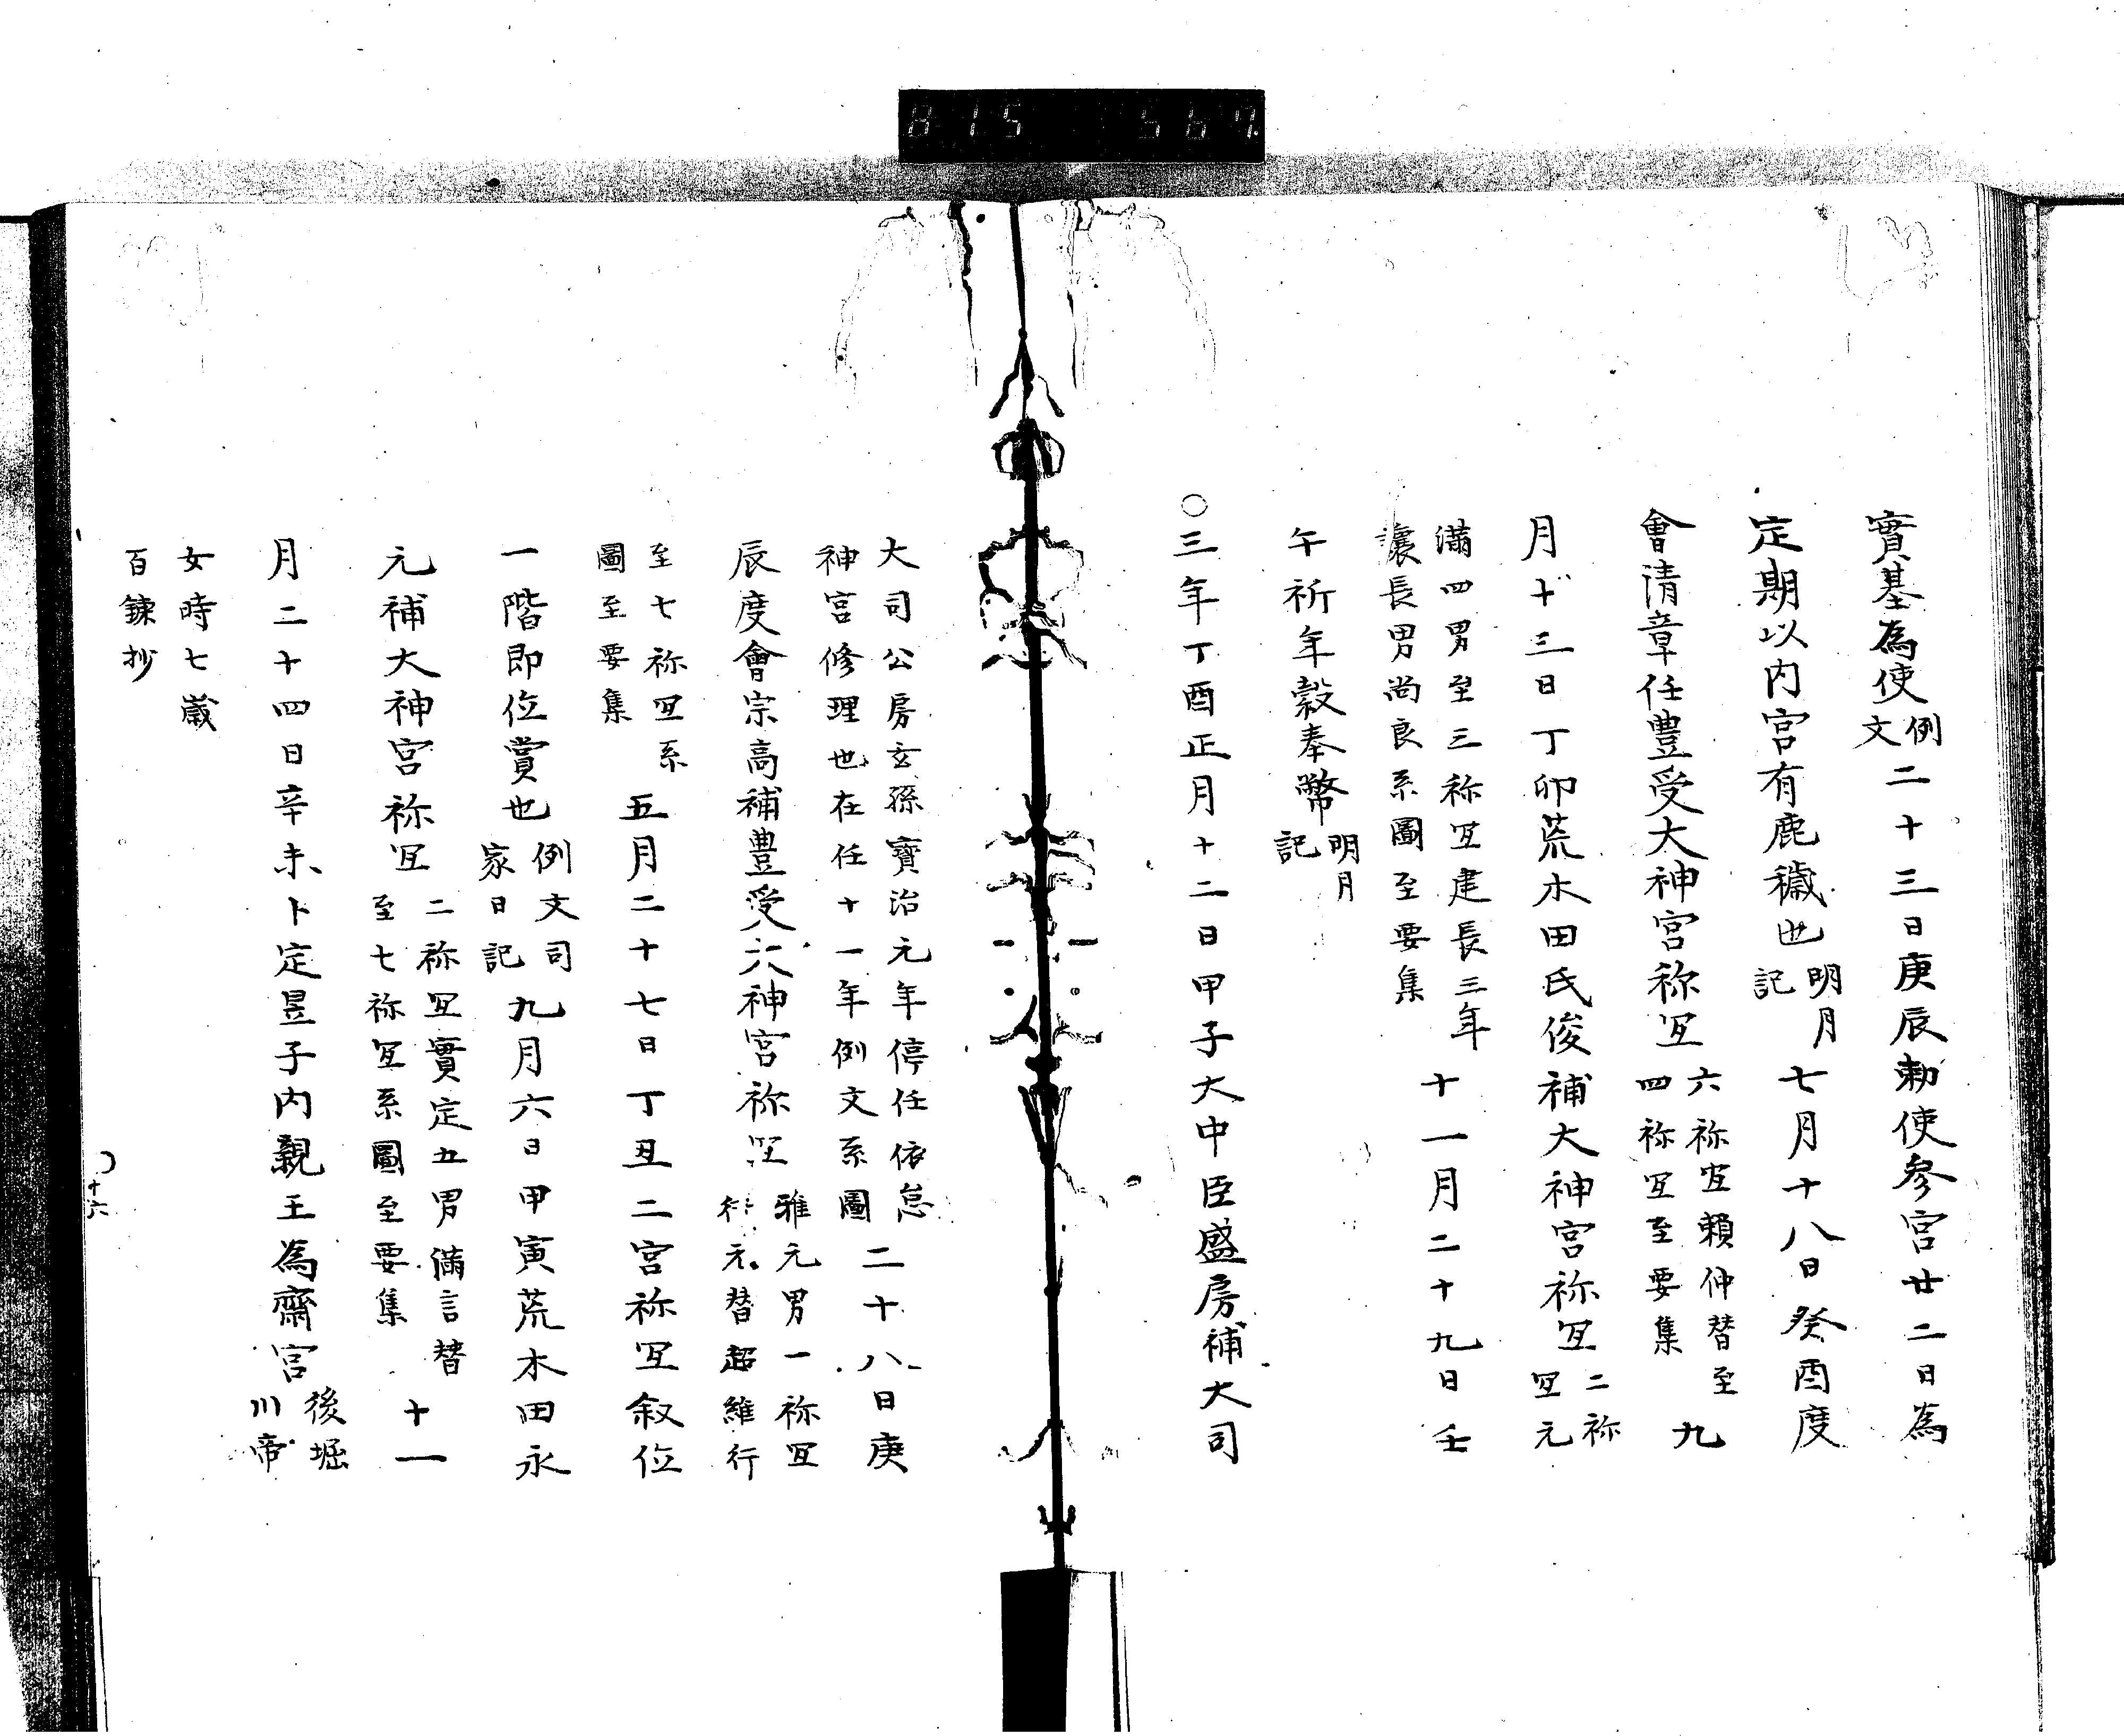 實基為使例文二十三日庚辰勅使参宮廿二日為
定期以内宮有鹿穢也明月記七月十八日癸酉度
會清章任豊受大神宮祢冝六祢冝賴仲替至四祢冝至要集九
月十三日丁卯荒木田氏俊補大神宮祢冝二祢冝元
滿四男至三祢冝建長三年讓長男尚良系圖至要集十一月二十九日壬
午祈年穀奉幣明月記
○三年丁酉正月十二日甲子大中臣盛房補大司
大司公房玄孫寶治元年停任依怠神宮修理也在任十一年例文系圖二十八日庚
辰度會宗高補豊受大神宮祢冝雅元男一祢冝行元替超維行
至七祢冝系圖至要集五月二十七日丁丑二宮祢冝叙位
一階即位賞也例文司家日記九月六日甲寅荒木田永
元補大神宮祢冝二祢冝實定五男滿言替至七祢冝系圖至要集十一
月二十四日辛未卜定昱子内親王為齋宮後堀川帝
女時七歳百錬抄
十六
815 567.